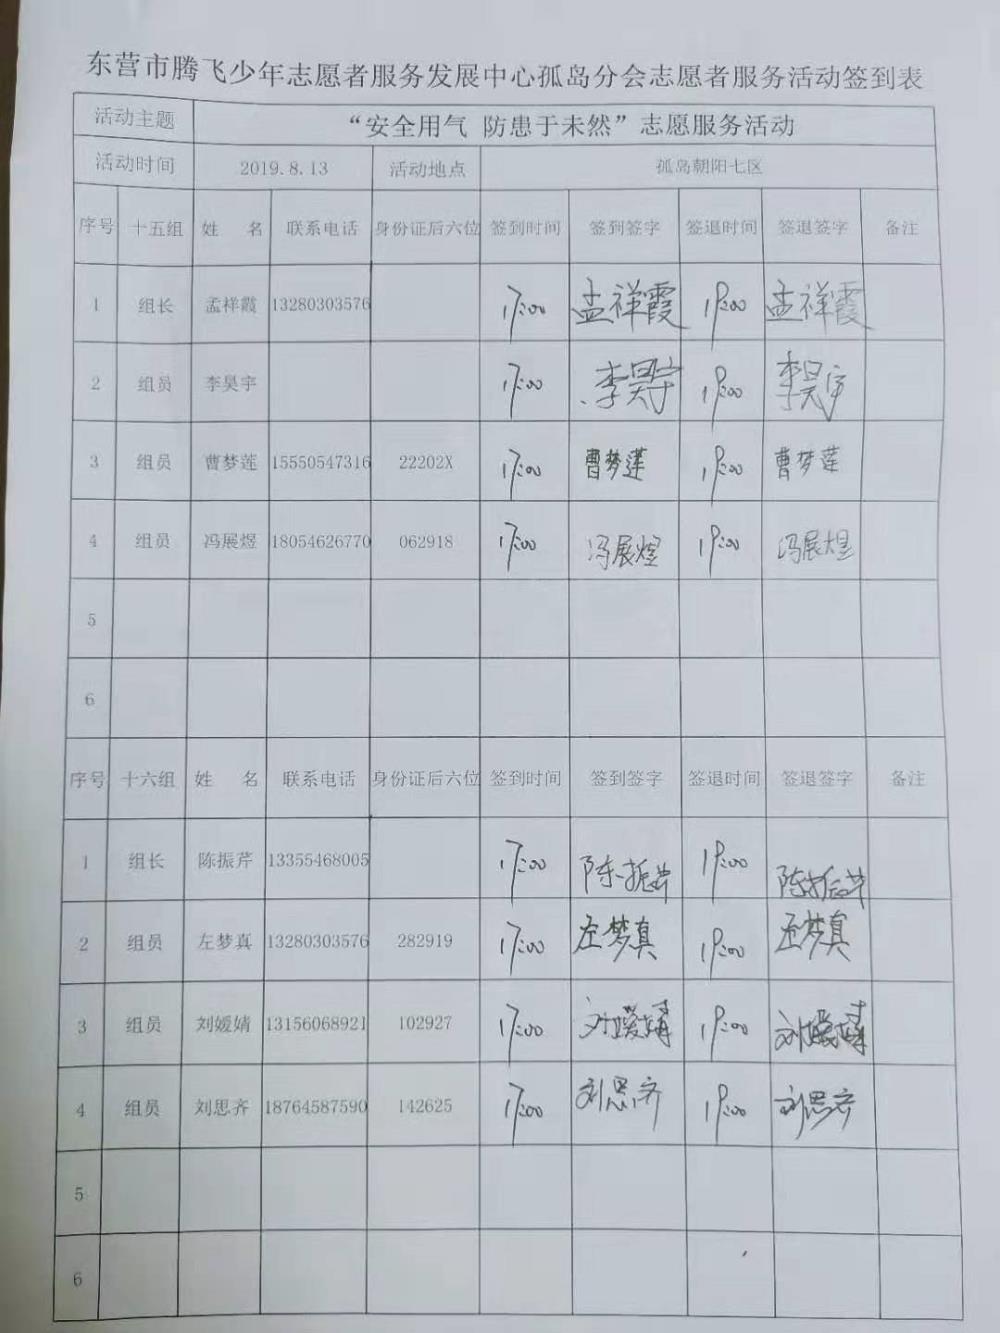 东营市腾飞少年志愿者服务发展中心孤岛分会志愿者服务活动签到表
活动主题 “安全用气 防患于未然”志愿服务活动
活动时间 2019.8.13 活动地点 孤岛朝阳七区
序号 十五组 姓 名 联系电话 身份证后六位 签到时间 签到签字 签退时间 签退签字 备注
1 组长 孟祥霞 13280303576 17:00 孟祥霞 19:00 孟祥霞
2 组员 李昊宇 17:00 李昊宇 19:00 李昊宇
3 组员 曹梦莲 15550547316 22202X 17:00 曹梦莲 19:00 曹梦莲
4 组员 冯展煜 18054626770 062918 17:00 冯展煜 19:00 冯展煜
5
6
序号 十六组 姓 名 联系电话 身份证后六位 签到时间 签到签字 签退时间 签退签字 备注
1 组长 陈振芹 13355468005 17:00 陈振芹 19:00 陈振芹
2 组员 左梦真 13280303576 282919 17:00 左梦真 19:00 左梦真
3 组员 刘媛婧 13156068921 102927 17:00 刘媛婧 19:00 刘媛婧
4 组员 刘思齐 18764587590 142625 17:00 刘思齐 19:00 刘思齐
5
6